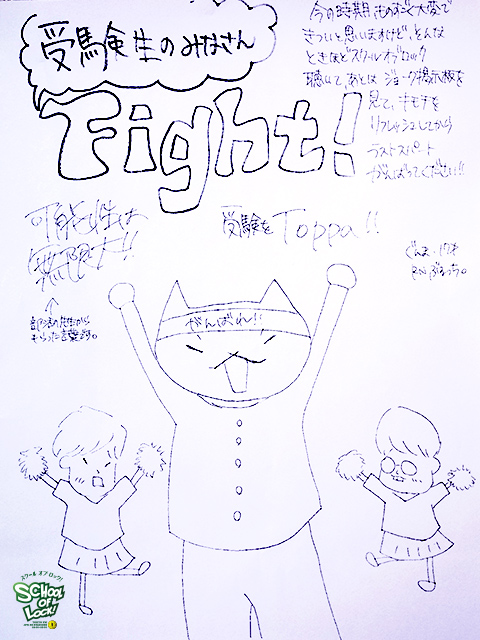 受験生のみなさん
Fight!
今の時期、ものすごく大変で
きついと思いますけど、そんな
ときほどスクールオブロック
聴いて、あとは ジョーク掲示板を
見て、キモチを
リフレッシュしてから
ラストスパート
がんばってください!!
可能性は
無限大!!
受験を Toppa!!
ぐんま 17才
RN ぶるっち。
もらった言葉です。
がんばれ!!
スクール オブ ロック!
SCHOOL
OF
LOCK!